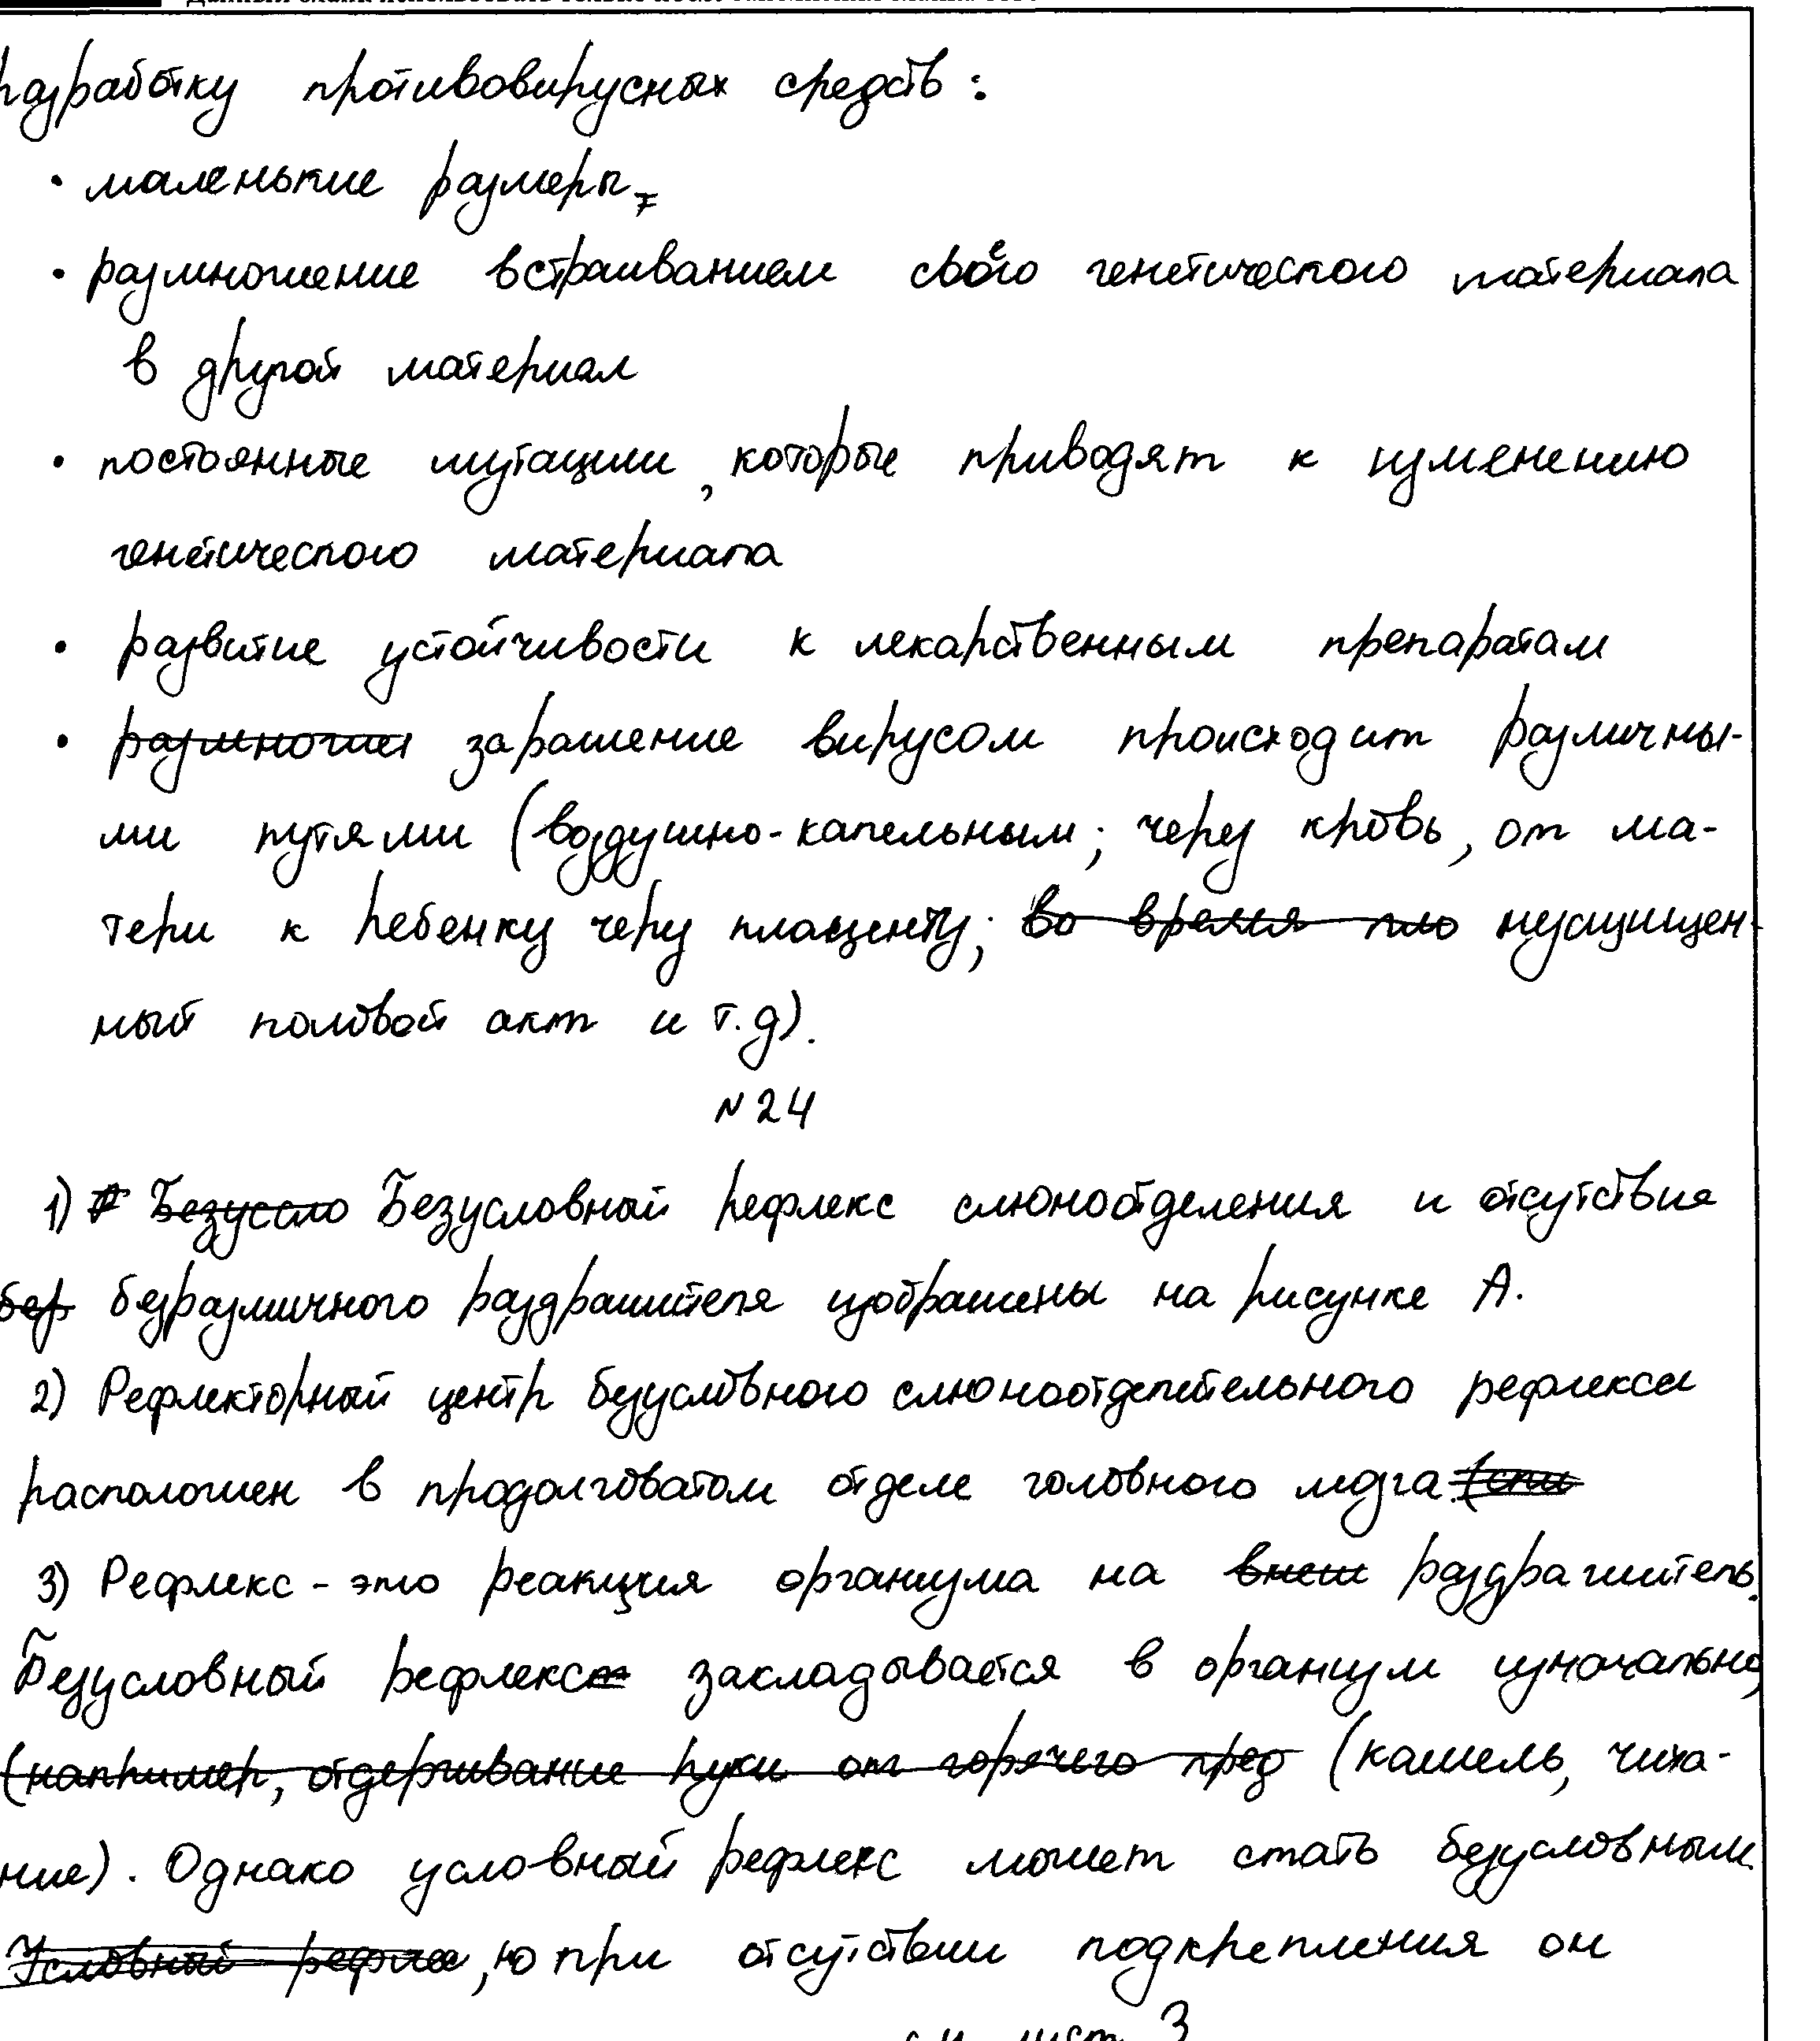 разработку противовирусных средств:
• маленькие размеры,
• размножение встраиванием своего генетического материала
в другой материал
• постоянные мутации, которые приводят к изменению
генетического материала
• развитие устойчивости к лекарственным препаратам
• размножен заражение вирусом происходит различны-
ми путями (воздушно-капельным; через кровь, от ма-
тери к ребенку через плаценту; во время пло незащищен-
ный половой акт и т.д).
№24
1) Безусло Безусловный рефлекс слюноотделения и отсутствие
без безразличного раздражителя изображены на рисунке А.
2) Рефлекторный центр безусловного слюноотделительного рефлекса
расположен в продолговатом отделе головного мозга. (спи
3) Рефлекс - это реакция организма на внеш раздражитель.
Безусловный рефлекс закладывается в организм изначально,
(например, отдергивание руки от горячего пред (кашель, чиха-
ние). Однако условный рефлекс может стать безусловным.
Условный рефле, но при отсутствии подкрепления он
лист 3